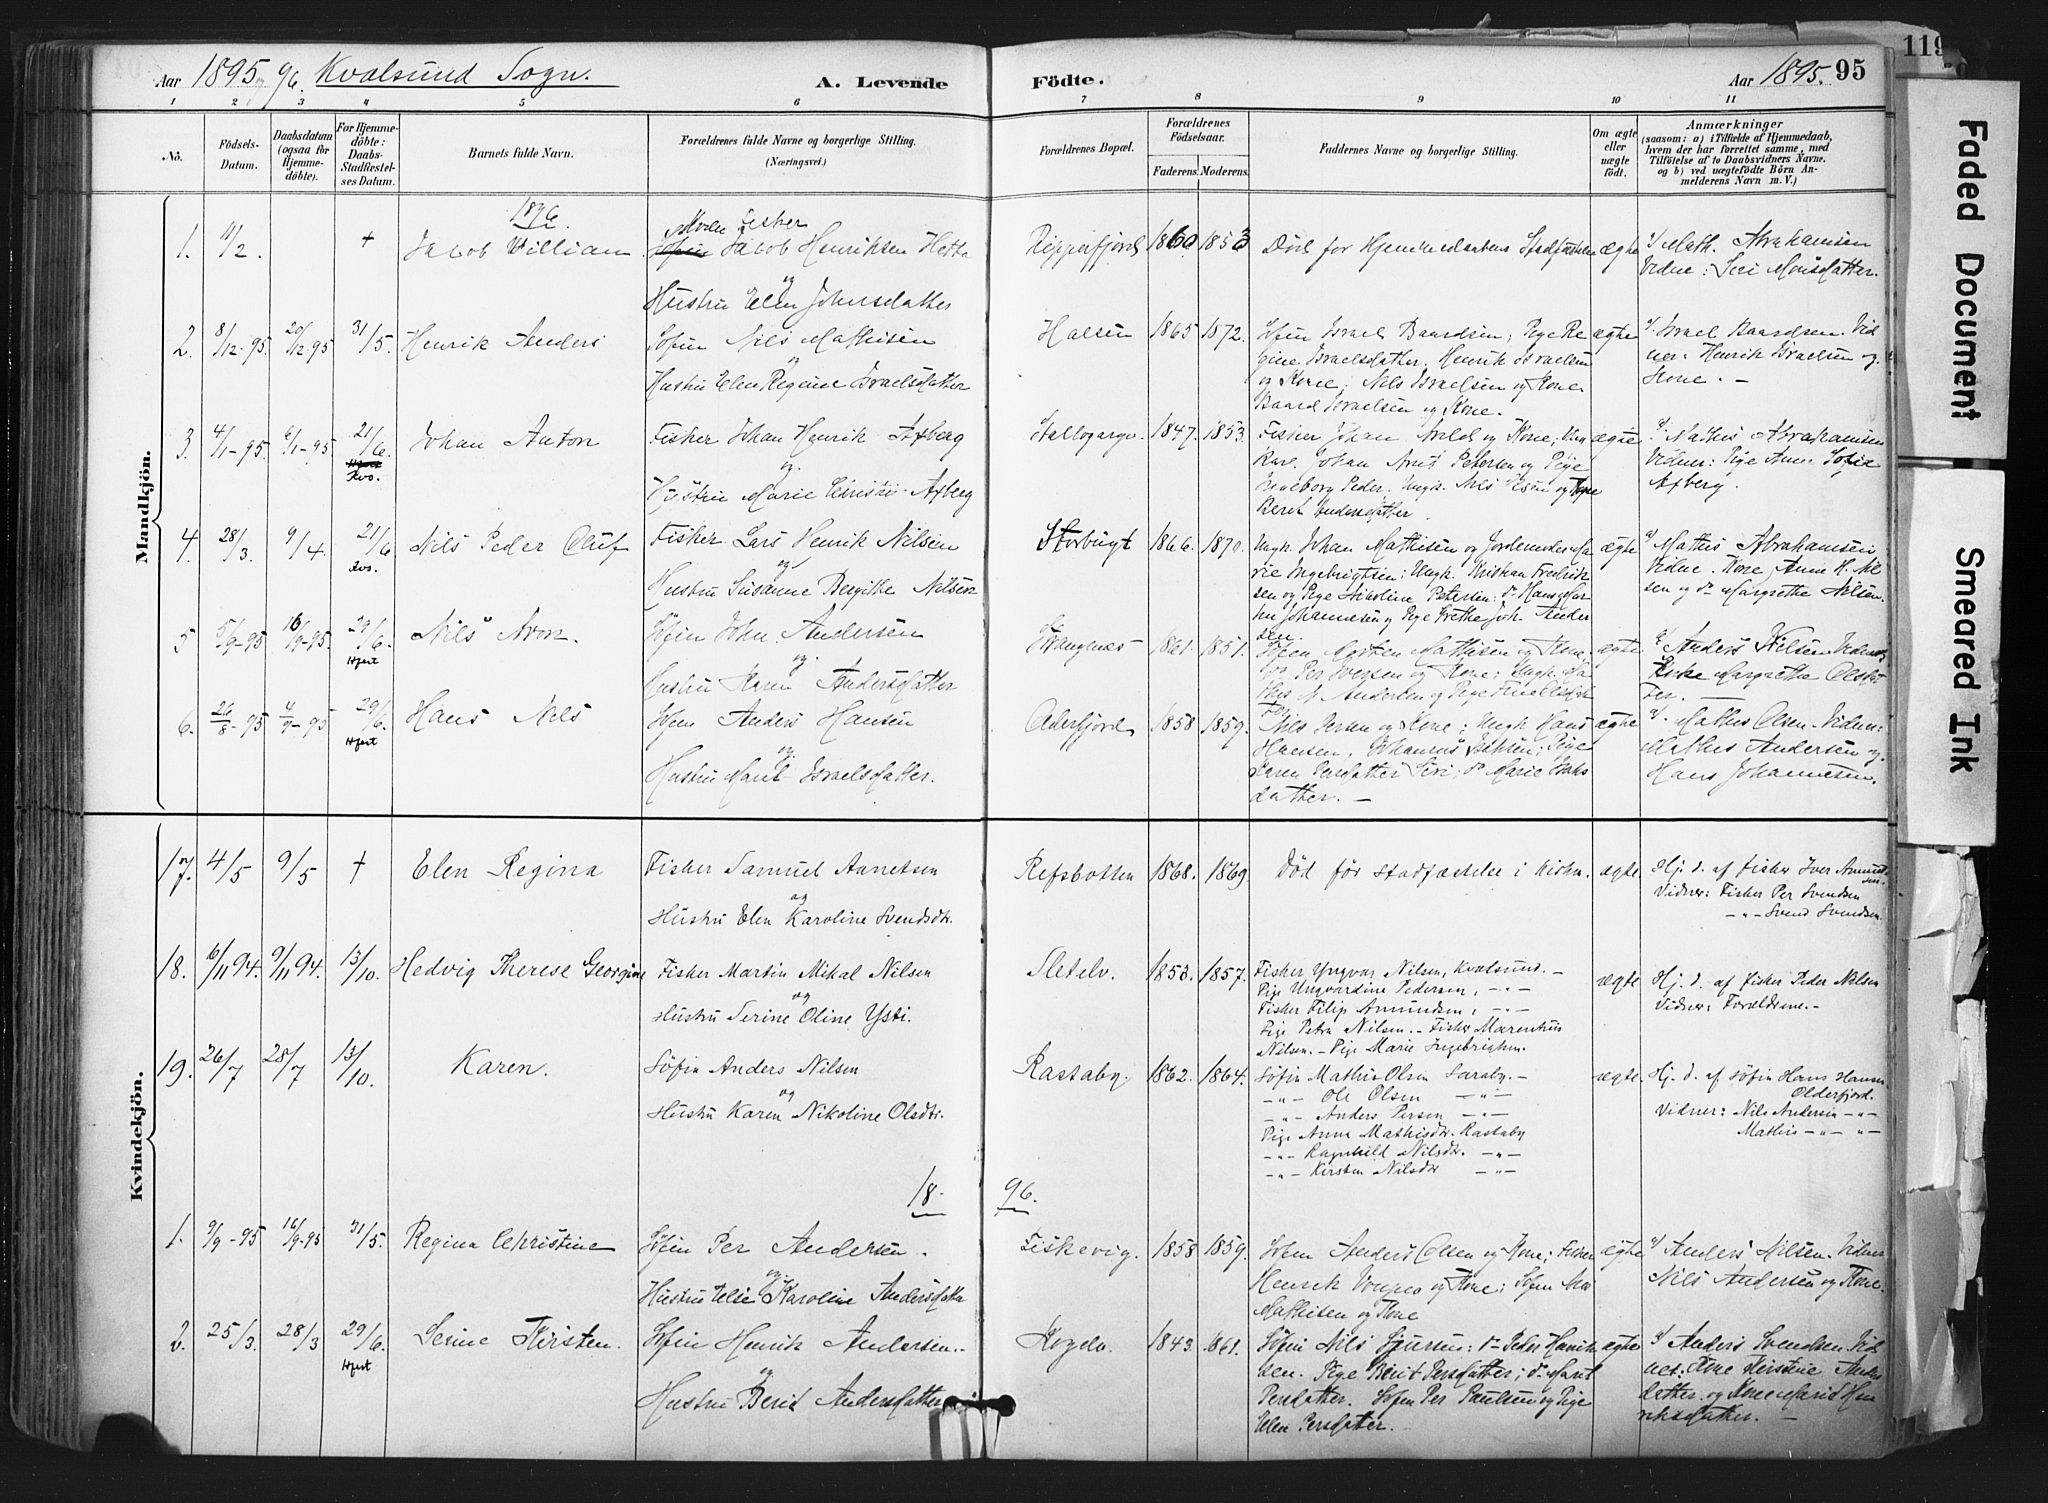 Aar 1895 og 96. Kvalsund Sogn. A. Levende Födte. Aar 1895. 95
119
1 2 3 4 5 6 7 8 9 10 11
Nö.
Födsels-Datum.
Daabsdatum (ogsaa for Hjemme-döbte).
For Hjemme-döbte: Daabs-Stadfæstel-ses Datum.
Barnets fulde Navn.
Forældrenes fulde Navne og borgerlige Stilling. (Næringsvei.)
Forældrenes Bopæl.
Forældrenes Födselsaar.
Faderens. Moderens.
Faddernes Navne og borgerlige Stilling.
Om ægte eller uægte födt.
Anmærkninger
(saasom: a) i Tilfælde af Hjemmedaab,
hvem der har forrettet samme, med
Tilföielse af to Daabsvidners Navne.
og b) ved uægtefödte Börn An-
melderens Navn m. V.)
Mandkjön.
1896.
1. 11/2. † Jacob William
Fisker
Jacob Henriksen Hetta
og
Hustru Elen Johnsdatter
Repperfjord 1860. 1853
Död for Hjemmedaabens Stadfæstelse ægte
v/ Math. Abrahamsen
Vidne: Siri Monsdatter.
2. 8/12-95. 20/12-95 31/5. Henrik Anders
Söfin Nils Mathisen
og
Hustru Elen Regine Israelsdatter
Halsen 1865 1872.
Söfin Israel Baardsen; Pige Re
gine Israelsdatter, Henrik Israelsen
og Kone; Nils Israelsen og Kone
Baard Israelsen og Kone.
ægte
v. Israel Baardsen. Vid
ner: Henrik Israelsen og
Kone. —
3. 4/1-95. 6/1-95 21/6. Kvs. Johan Anton
Fisker Johan Henrik Axberg
og
Hustru Marie Axberg
1847. 1853.
Fisker Johan og Kone;
Johan Petersen og Pige
Ingeborg Peder. Ungk. Nils og Kone
Beret Andersdatter
ægte
v. Mathis Abrahamsen
Vidner: Pige Anne Sofie
Axberg.
4. 28/3. 9/4 21/6 Kvs. Nils Peder Oluf
Fisker Lars Henrik Nilsen
og
Hustru Susanne Bergithe Nilsen
Storbugt 1866. 1870.
Ungk. Johan Mathisen og Jordemoder Ma-
rie Ingebrigtsen; Ungk. Kristian Fredrik-
sen og Pige Nikoline Petersen: do Hans Mar
Johannesen og Pige Grethe Joh. Ander
sen.
ægte
v/ Mathis Abrahamsen
Vidne. Kone Anne H. Nil
sen og do Margrethe Nilsen.
5 5/9-95 16/9-95. 29/6. Hjert Nils Aron.
Söfin John Andersen
og
Hustru Karen Andersdatter
1861. 1851.
Söfin Morten Mathisen og Kone.
og Per Iversen og Kone; Ungk. Ma
this N. Andersen og Pige
ægte
v/ Anders Nilsen. Vidner
Kone Margrethe Olsdat
ter. —
6. 26/8-95 4/9-95 29/6. Hjert Hans Nils
Söfin Anders Hansen
og
Hustru Marit Israelsdatter.
Oderfjord 1858 1859.
Nils Persen og Kone; Ungk Hans
Hansen, Johannes Isaksen; Pige
Karen Persdatter Siri; do Marie Isaks
datter. —
ægte
v/. Mathis Olsen. Vidner:
Mathis Andersen og
Hans Johannesen.
Kvindekjön.
17. 4/5 9/5 † Elen Regina
Fisker Samuel Anretsen
og
Hustru Elen Karoline Svendsdtr.
Refsbotten 1868. 1869.
Död för Stadfæstelse i Kirken. ægte.
Hj. d. af Fisker Iver Amund
sen.
Vidner: Fisker Per Svendsen
-"- Svend Svendsen.
18. 6/11 94. 9/11 94. 13/10. Hedvig Therese Georgine
Fisker Martin Mikal Nilsen
og
Hustru Serine Oline Ysti.
Sletelv. 1853. 1857.
Fisker Yngvar Nilsen, Kvalsund. —
Pige Ungvardine Pedersen, -"-
Fisker Filip Amundsen, -"-
Pige Petra Nilsen. - Fisker Marentius
Nilsen. - Pige Marie Ingebrigtsen.
ægte
Hj. d. af Fisker Peder Nilsen
Vidner: Forældrene. -
19. 26/7 28/7 13/10. Karen.
Söfin Anders Nilsen
og
Hustru Karen Nikoline Olsdtr.
Rastaby. 1862. 1864.
Söfin Mathis Olsen Saraby. -
-"- Ole Olsen -"-
-"- Anders Persen -"-
Pige Anna Mathisdtr. Rastaby
-"- Ragnhild Nilsdtr. -"-
-"- Kirsten Nilsdtr -"-
ægte.
Hj. d. af Söfin Hans Hansen
Olderfjord.
Vidner: Nils Andersen -"-
Mathis -"- -"-
18 96.
1. 9/9-95 16/9-95 31/5. Regina Christine
Söfin Per Andersen.
og
Hustru Else Karoline Andersdatter
Fiskevig. 1858 1859.
Söfin Anders Olsen og Kone; Fisker
Henrik og Kone; Söfin
Mathisen og Kone
ægte
v/ Anders Nilsen. Vidner
Nils Andersen og Kone.
2. 25/3. 28/3 29/6. Hjert Serine Kirsten.
Söfin Henrik Andersen.
og
Hustru Berit Andersdatter
1843. 1861.
Söfin Nils Sjursen: do Peder Henrik
sen. Pige Berit Persdatter; do Marit
Persdatter. Söfin Per Paulsen og Pige
Elen Persdatter. -
ægte
v/ Anders Svendsen. Vid
ner. Kone Kirstine Anders
datter. og Kone Marid Hen
riksdatter. —
Faded Document
Smeared Ink